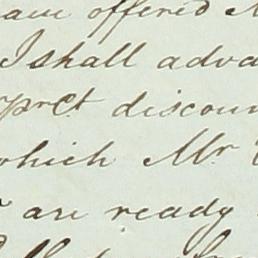 have offered
I shall adva
prCt discoun
which Mr
are ready